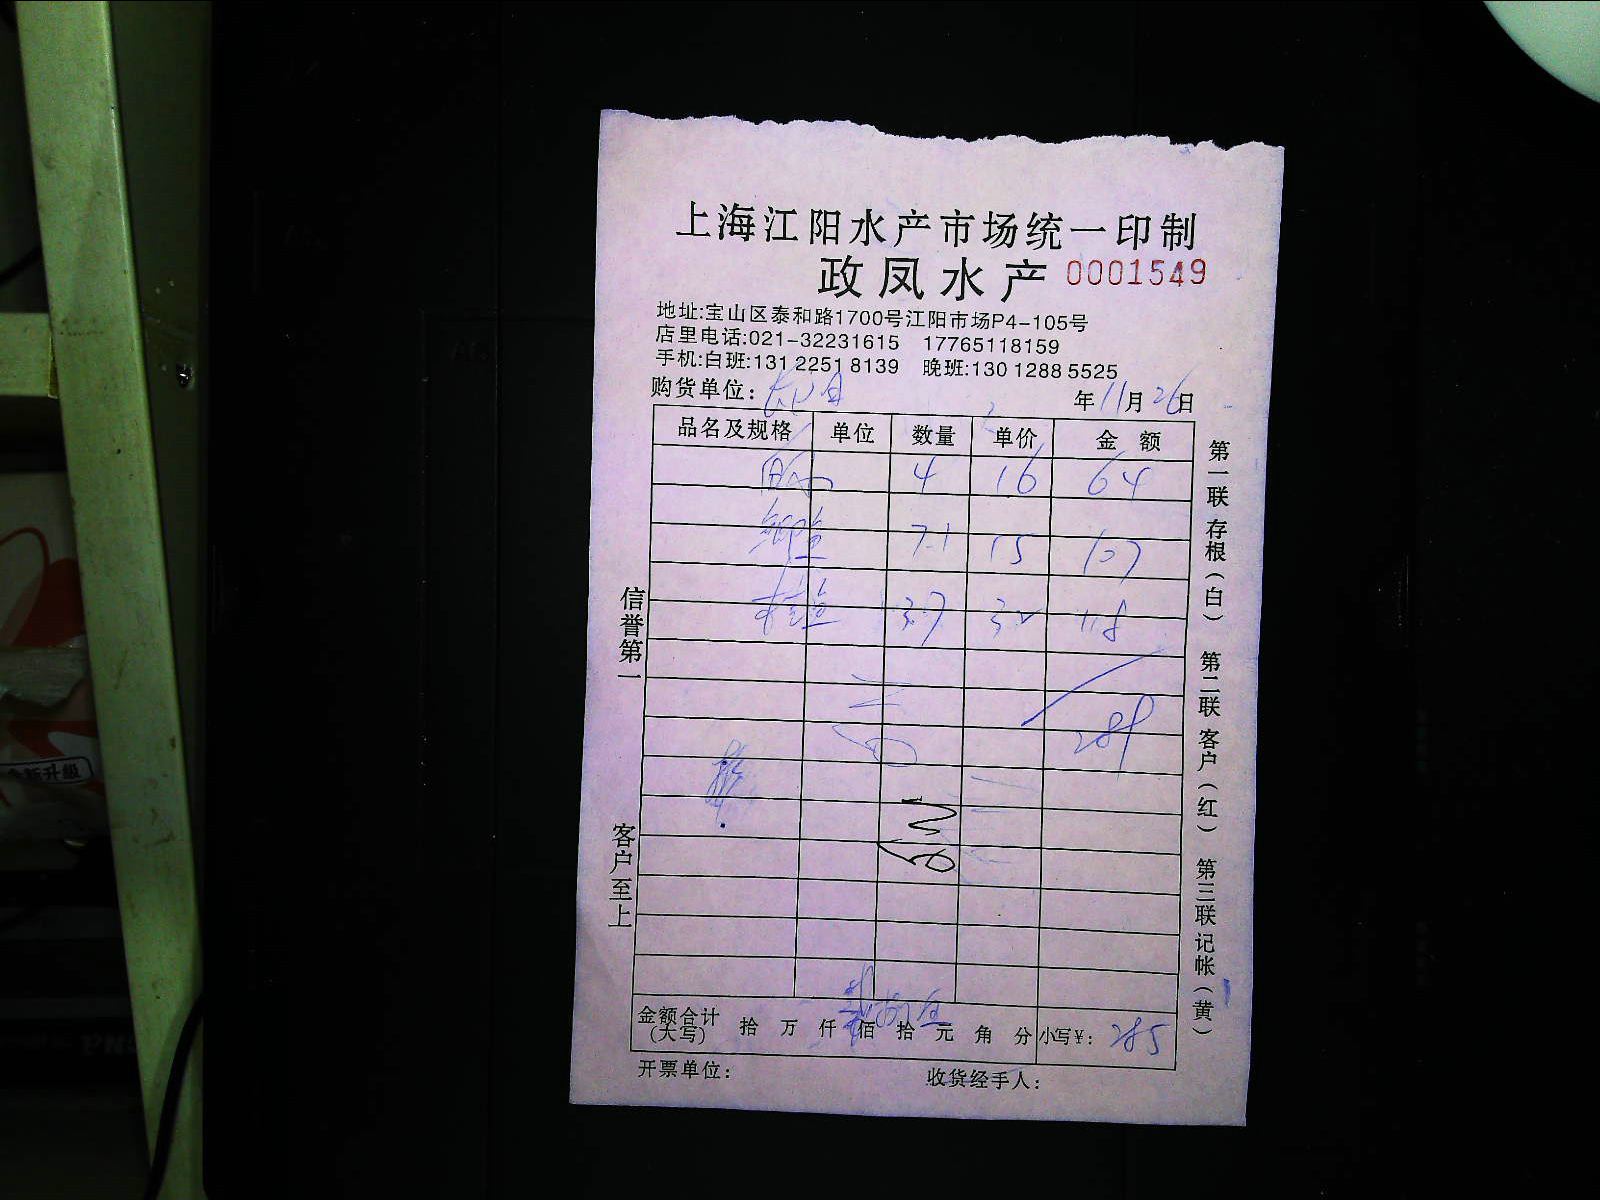 上海江阳水产市场统一印制
政凤水产 0001549
地址:宝山区泰和路1700号江阳市场P4-105号
店里电话:021-32231615 17765118159
手机:白班:131 2251 8139 晚班:130 1288 5525
购货单位: 年11月26日
品名及规格 单位 数量 单价 金 额
4 16 64
鲫鱼 7.1 15 107
桂鱼 3.7 32 118
289
金额合计(大写) 拾 万 仟 佰 拾 元 角 分 小写¥: 285
开票单位: 收货经手人:
信誉第一
客户至上
第一联 存根(白) 第二联 客户(红) 第三联 记帐(黄)
全新升级